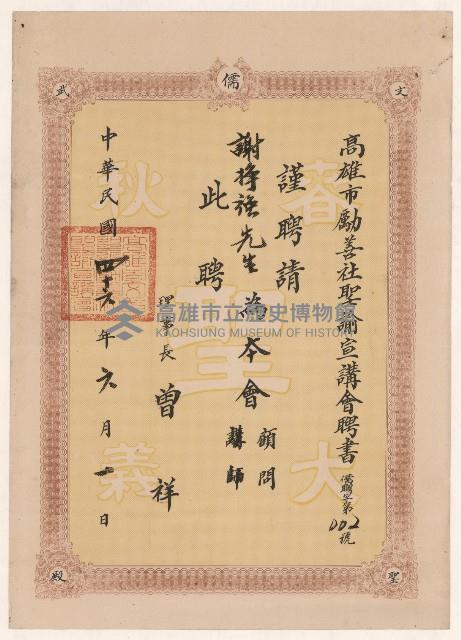 高雄市勵善社聖諭宣講會聘書
儒聘字第002號
謹聘請
謝掙強先生為本會顧問
講師
此聘
理事長 曾祥
中華民國四十六年六月一日
儒
文
武
聖
殿
春
秋
大
義
聖
高雄市立歷史博物館
KAOHSIUNG MUSEUM OF HISTORY